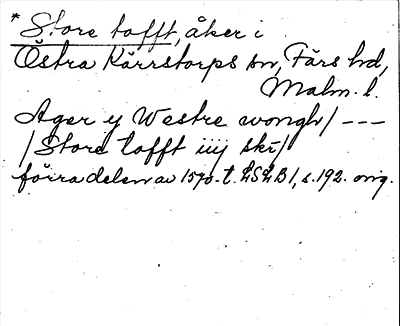 * Store tofft, åker i
Östra Kärrstorps sn, Färs hd,
Malm. l.
Ager y Westre wongh/ ---
/Store tofft iiij skr/
förra delen av 1570-t. LSLB 1, s. 192. orig.